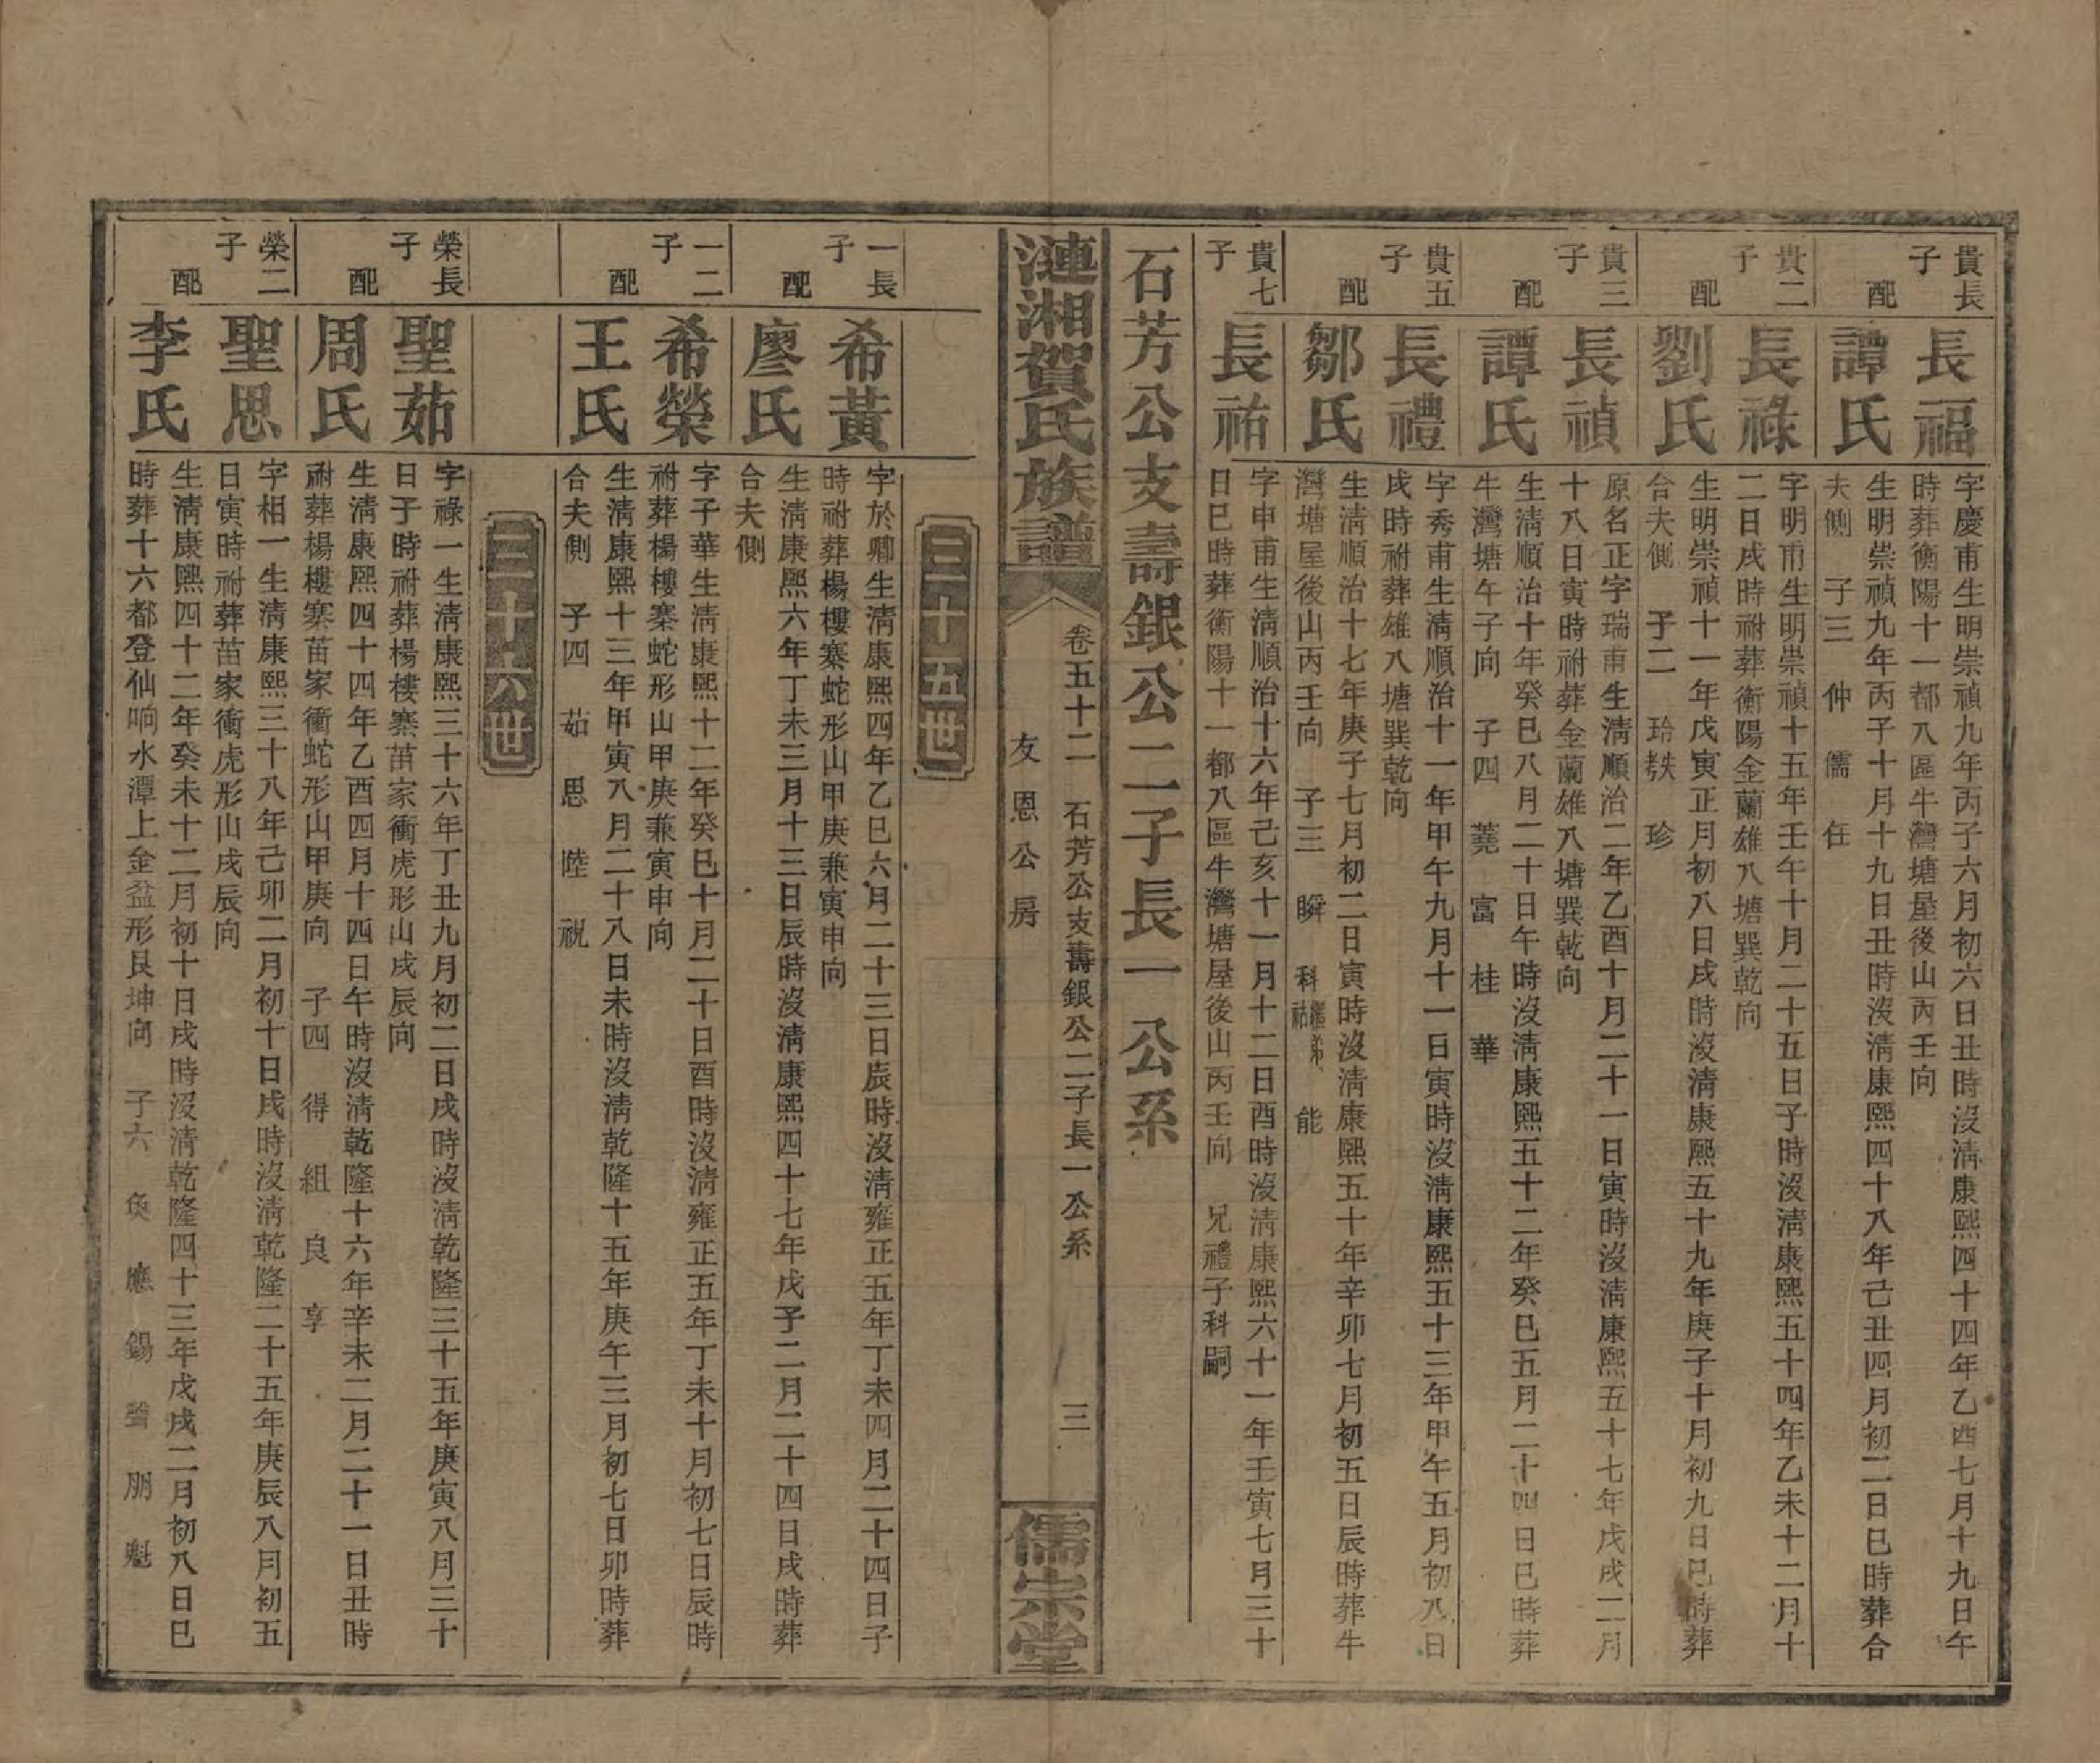 貴長子
長福
字慶甫生明崇禎九年丙子六月初六日丑時沒淸康熙四十四年乙酉七月十九日午
時葬衡陽十一都八區牛灣塘屋後山丙壬向
配
譚氏
生明崇禎九年丙子十月十九日丑時沒淸康熙四十八年己丑四月初二日巳時葬合
夫側 子三 仲 儒 任
貴二子
長祿
字明甫生明崇禎十五年壬午十月二十五日子時沒淸康熙五十四年乙未十二月十
二日戌時祔葬衡陽金蘭雄八塘巽乾向
配
劉氏
生明崇禎十一年戊寅正月初八日戌時沒淸康熙五十九年庚子十月初九日巳時葬
合夫側 子二 珍
貴三子
長禎
原名正字瑞甫生淸順治二年乙酉十月二十一日寅時沒淸康熙五十七年戊戌二月
十八日寅時祔葬金蘭雄八塘巽乾向
配
譚氏
生淸順治十年癸巳八月二十日午時沒淸康熙五十二年癸巳五月二十四日巳時葬
牛灣塘午子向 子四 蕘 富 桂 華
貴五子
長禮
字秀甫生淸順治十一年甲午九月十一日寅時沒淸康熙五十三年甲午五月初八日
戌時祔葬雄八塘巽乾向
配
鄒氏
生淸順治十七年庚子七月初二日寅時沒淸康熙五十年辛卯七月初五日辰時葬牛
灣塘屋後山丙壬向 子三 瞬 科 繼弟祜 能
貴七子
長祐
字申甫生淸順治十六年己亥十一月十二日酉時沒淸康熙六十一年壬寅七月三十
日巳時葬衡陽十一都八區牛灣塘屋後山丙壬向 兄禮子科嗣
石芳公支壽銀公二子長一公系
漣湘賀氏族譜
卷五十二 石芳公支壽銀公二子長一公系 三
友恩公房
儒宗堂
三十五世
一長子
希黃
字於卿生淸康熙四年乙巳六月二十三日辰時沒淸雍正五年丁未四月二十四日子
時祔葬楊樓寨蛇形山甲庚兼寅申向
配
廖氏
生淸康熙六年丁未三月十三日辰時沒淸康熙四十七年戊子二月二十四日戌時葬
合夫側
一二子
希榮
字子華生淸康熙十二年癸巳十月二十日酉時沒淸雍正五年丁未十月初七日辰時
祔葬楊樓寨蛇形山甲庚兼寅申向
配
王氏
生淸康熙十三年甲寅八月二十八日未時沒淸乾隆十五年庚午三月初七日卯時葬
合夫側 子四 茹 思 陸 祝
三十六世
榮長子
聖茹
字祿一生淸康熙三十六年丁丑九月初二日戌時沒淸乾隆三十五年庚寅八月三十
日子時祔葬楊樓寨苗家衝虎形山戌辰向
配
周氏
生淸康熙四十四年乙酉四月十四日午時沒淸乾隆十六年辛未二月二十一日丑時
祔葬楊樓寨苗家衝蛇形山甲庚向 子四 得 組 良 享
榮二子
聖思
字相一生淸康熙三十八年己卯二月初十日戌時沒淸乾隆二十五年庚辰八月初五
日寅時祔葬苗家衝虎形山戌辰向
配
李氏
生淸康熙四十二年癸未十二月初十日戌時沒淸乾隆四十三年戊戌二月初八日巳
時葬十六都登仙响水潭上金盆形艮坤向 子六 奐 應 錫 朋 魁